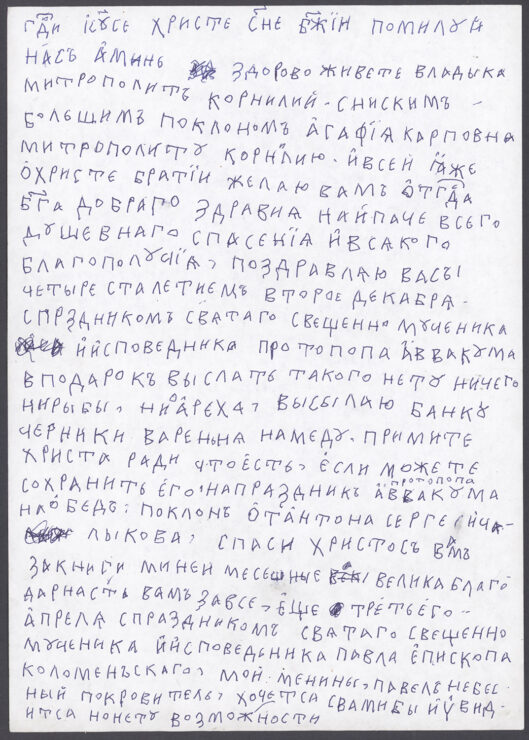 гд҃и іс҃усе христе сн҃е бж҃їи помилуй
насъ а҆минь здорово живете владыка
митрополитъ корнилий. снискимъ –
большимъ поклономъ а҆гафїѧ карповна
митрополиту корнилию. и҆всей ꙗ҆же
ѻ҆христе братїи желаю вамъ ѿгд҃а
бг҃а добраго здравиа найпаче всего
душевнаго спасенїѧ и҆всѧкого
благополучїѧ, поздравлѧю васъі
четыре сталетиемъ второе декабрѧ.
спрздникомъ свѧтаго свещенно мученика
и҆и҆споведника протопопа а҆ввакума
вподарокъ выслать такого нету ничего
нирыбы, ниѻ҆реха, высылаю банку
черники вареньна намеду. примите
христа ради чтоесть, е҆сли можете
сохранить е҆го напраздникъ протопопа а҆ввакума
наѻ҆бедъ, поклонъ ѿа҆нтона сергеича –
лыкова, спаси христосъ вамъ
закниги минеи месешные велика благо
дарнасть вамъ завсе, е҆ще третьего –
а҆прелѧ спраздникомъ свѧтаго свещенно
мученика и҆и҆споведьника павла е҆пископа
коломеньскаго, мои менины, павелъ небес
ный покровитель, хочетсѧ свамибы и҆увид-
итсѧ нонету возможности